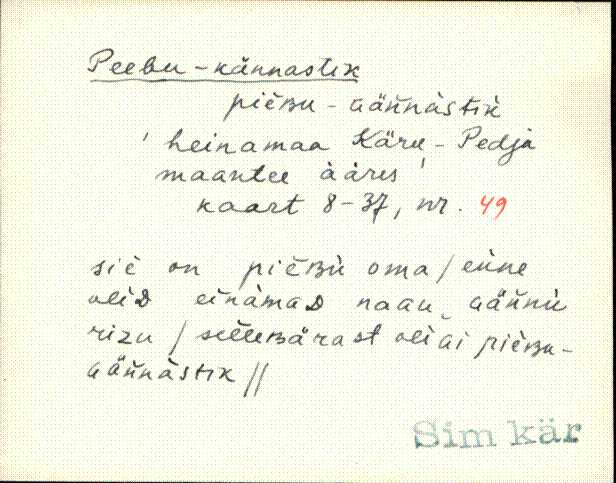 Peebu-kännastik
pièBu-ɢäǹǹàstik
'heinamaa Käru-Pedja
maantee ääres'
kaart 8-37, nr. 49
siè on pièBù oma/eìne
oliD eìnàmaD naɢu ɢäǹǹù
rizu/sèllèBärast oliɢi pièBu-
ɢäǹǹàstik//
Sim kär